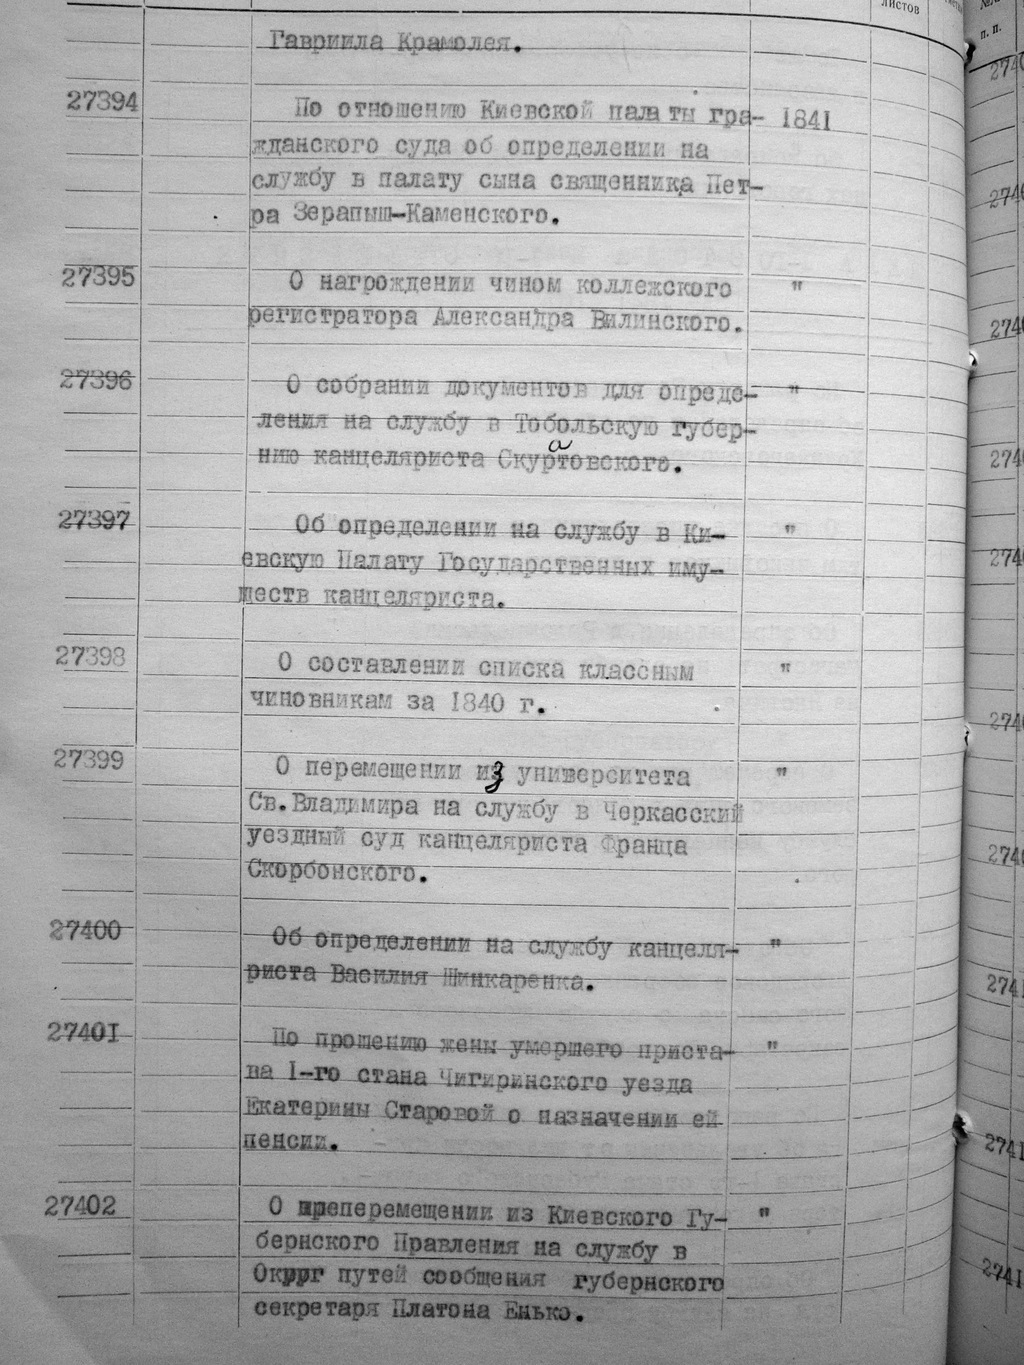 листов
п. п.
Гавриила Крамолея.
27394 По отношению Киевской палаты гра- 1841
жданского суда об определении на
службу в палату сына священника Пет-
ра Зерапыш-Каменского.
27395 О награждении чином коллежского "
регистратора Александра Вилинского.
27396 О собрании документов для опреде- "
ления на службу в Тобольскую губер-
нию канцеляриста Скуратовского.
27397 Об определении на службу в Ки- "
евскую Палату Государственных иму-
ществ канцеляриста.
27398 О составлении списка классным "
чиновникам за 1840 г.
27399 О перемещении из университета "
Св.Владимира на службу в Черкасский
уездный суд канцеляриста Франца
Скорбонского.
27400 Об определении на службу канцеля- "
риста Василия Шинкаренка.
27401 По прошению жены умершего приста- "
ва 1-го стана Чигиринского уезда
Екатерины Старовой о назначении ей
пенсии.
27402 О преперемещении из Киевского Гу- "
бернского Правления на службу в
Округ путей сообщения губернского
секретаря Платона Енько.